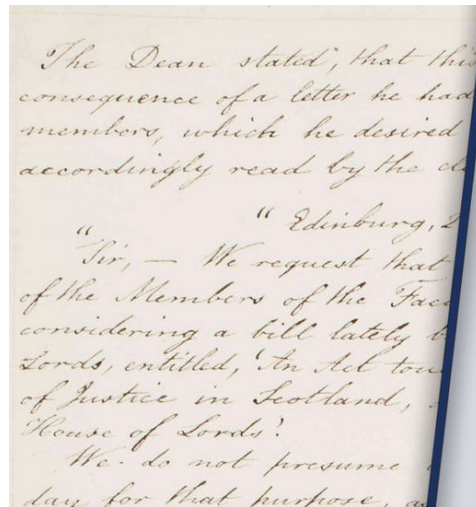 The Dean stated, that this
consequence of a letter he had
members, which he desired
accordingly read by the
" " Edinburg,
Sir, — We request that
of the Members of the
considering a bill lately
Lords, entitled, 'An Act
of Justice in Scotland,
House of Lords.'
We do not presume
day for that purpose,